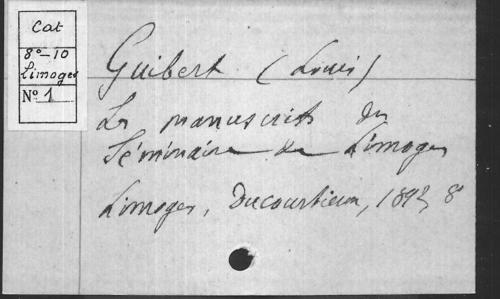 Cat
8°-10
Limoges
N° 1
Guibert (Louis)
Les manuscrits du
Séminaire de Limoges
Limoges, Ducourtieux, 1892, 8°